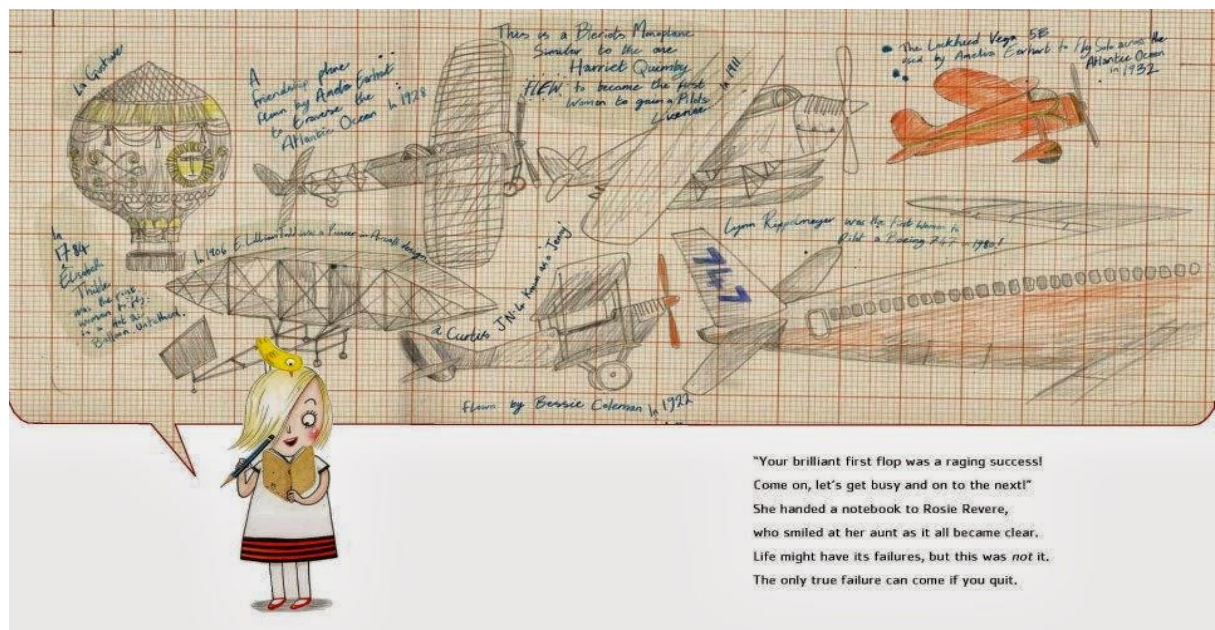 La Gustave
A
friendship plane
flown by Earhart
to traverse the
Atlantic Ocean
In 1928
This is a Bleriots Monoplane
Similar to the one
Harriet Quimby
FLEW to became the first
Woman to gain a Pilots
Licence
In 1911
The Lockheed Vega 5B
used by Amelia Earhart to fly Solo across the
Atlantic Ocean
in 1932
In
1784
Élisabeth
Thible
was the first
woman to fly
in a hot air
Balloon Untethered.
In 1906 E. Lillian Todd was a Pioneer in Aircraft design
a Curtis JN-4 Known as a Jenny
Lynn Rippelmeyer was the First Woman to
Pilot a Boeing 747 in 1980!
747
flown by Bessie Coleman In 1922
"Your brilliant first flop was a raging success!
Come on, let's get busy and on to the next!"
She handed a notebook to Rosie Revere,
who smiled at her aunt as it all became clear.
Life might have its failures, but this was not it.
The only true failure can come if you quit.